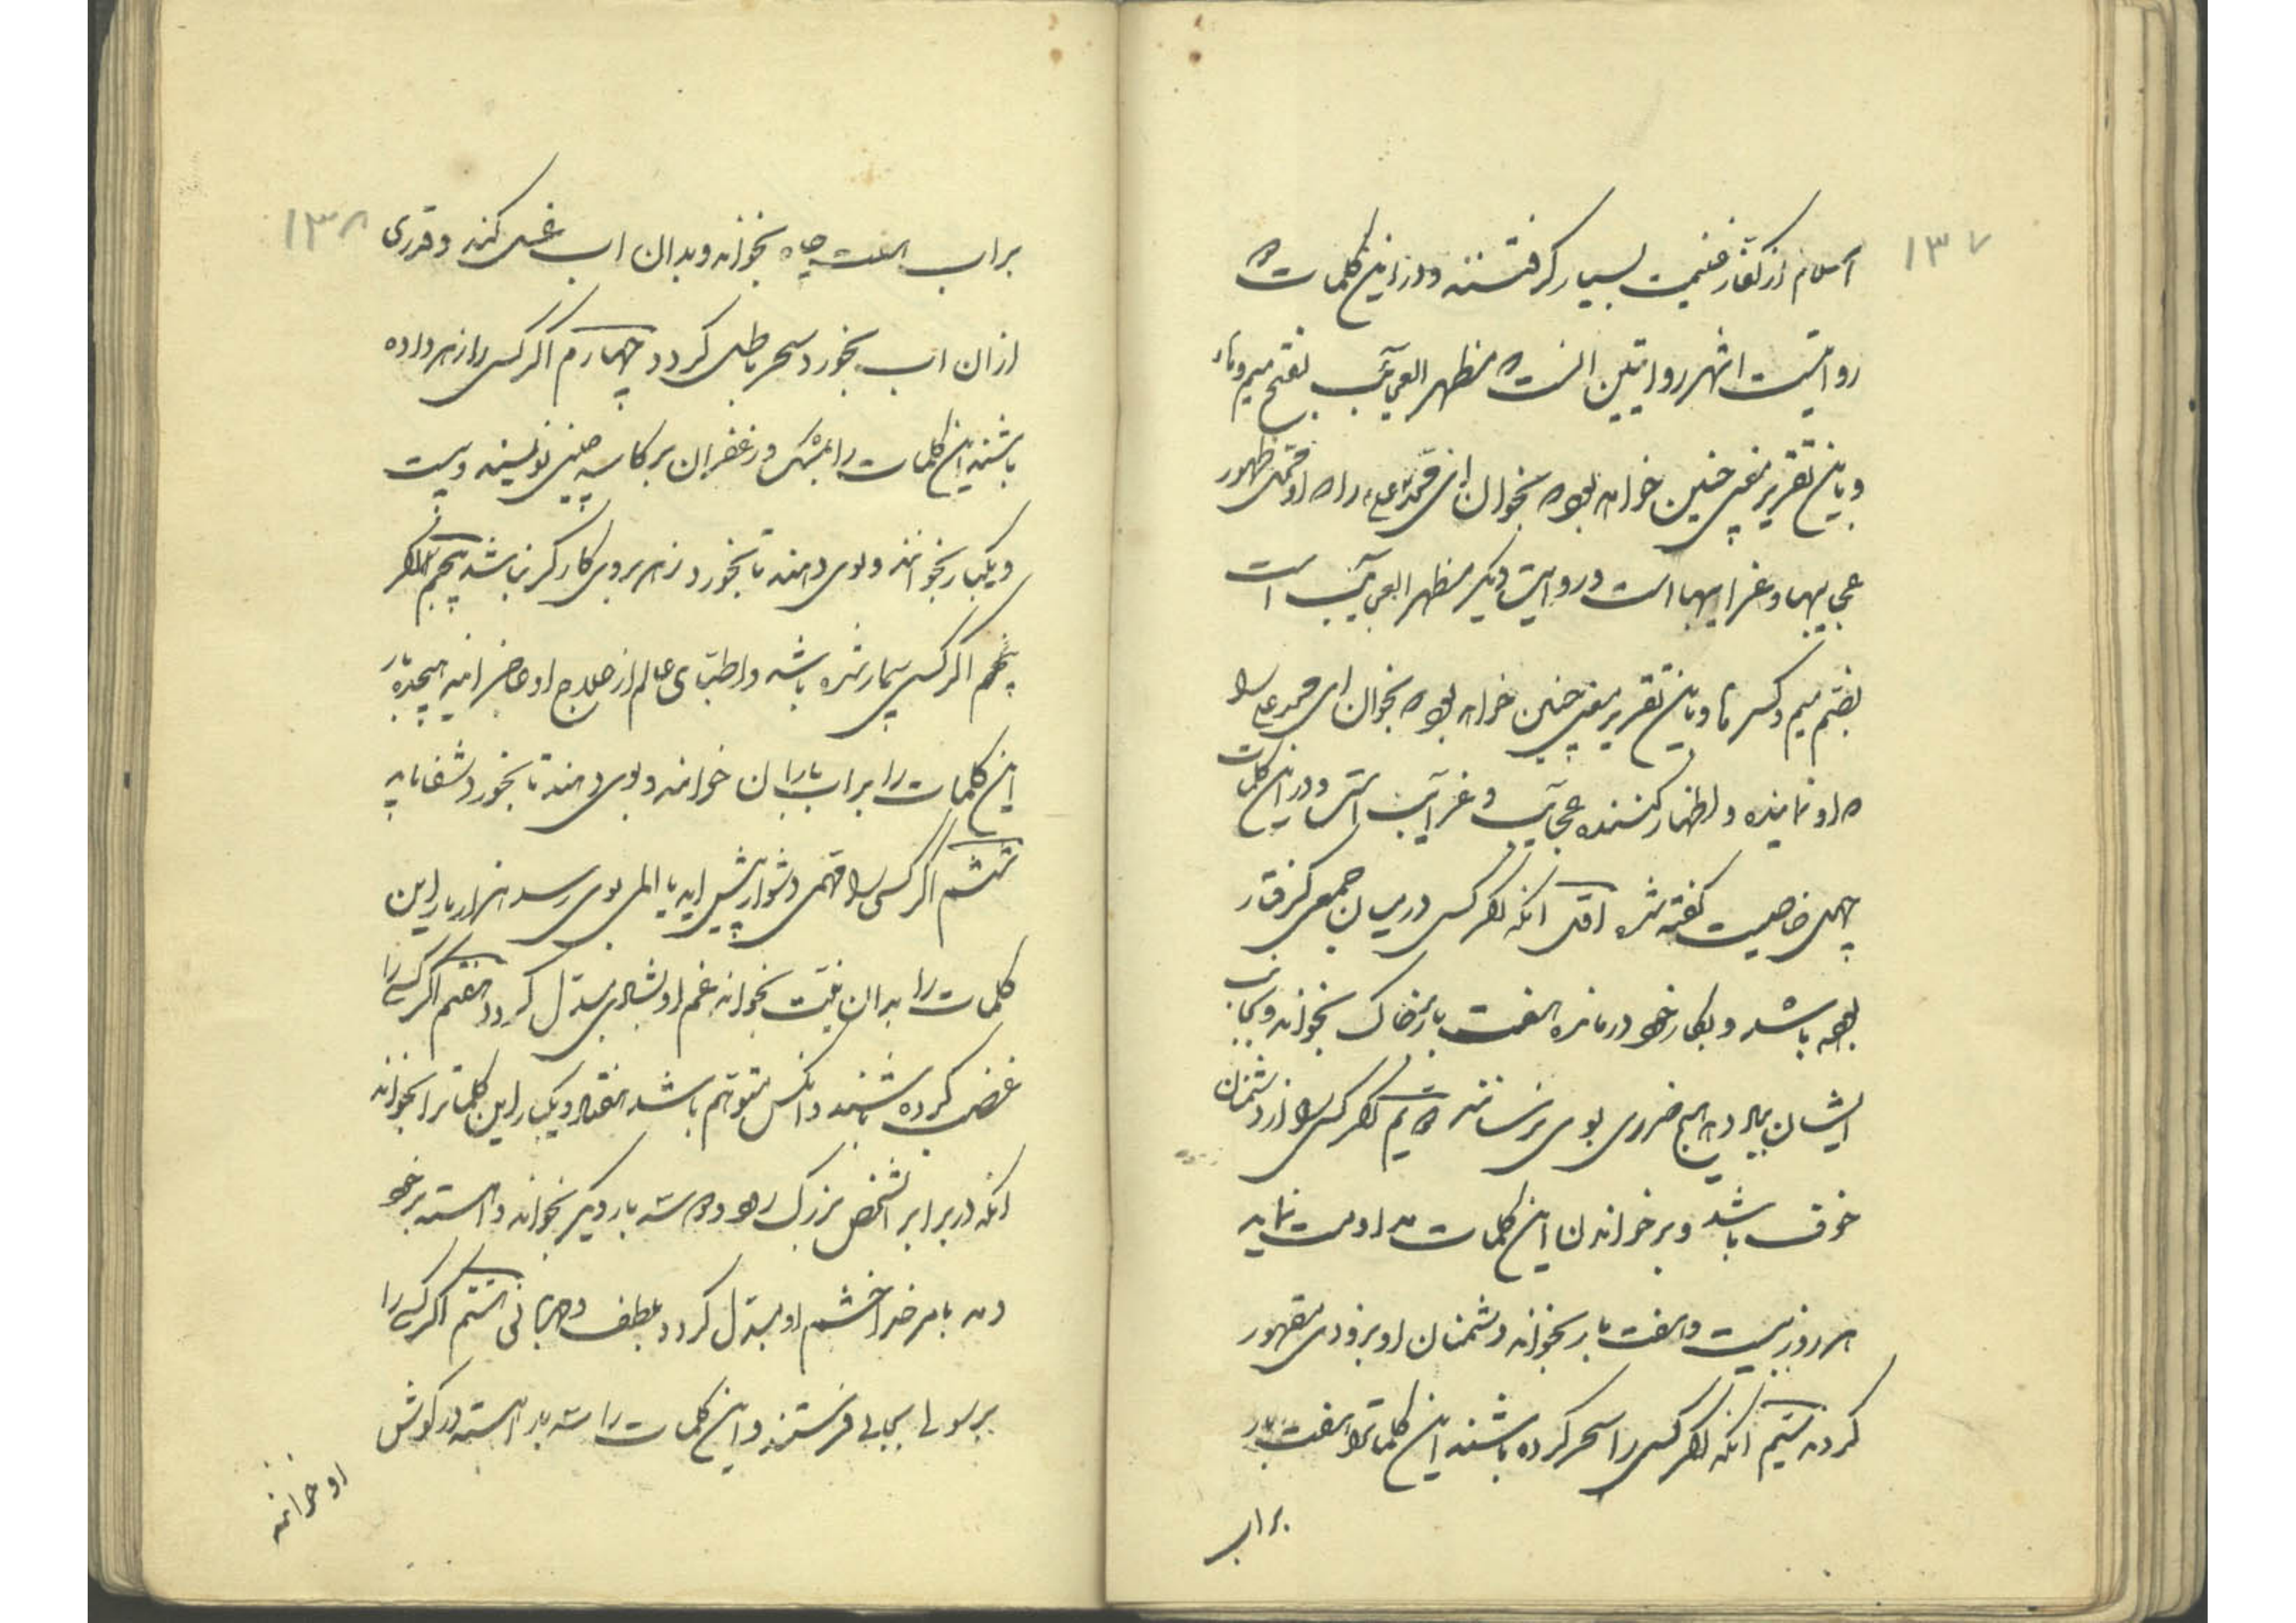 ۱۳۷
اسلام از کفار غنیمت بسیار گرفتند و در این کلمات دو
روایتست اشهر روایتین انست که مظهر العجایب بفتح میم وهاء
و باین تقریر معنی چنین خواهد بود که بخوان ای محمد علی را که او محل ظهور
عجایبها و غرایبها است و روایت دیگر مظهر العجایب است
بضم میم و کسر ها و باین تقریر معنی چنین خواهد بود که بخوان ای محمد علی را
که او نماینده و اظهار کننده عجایب و غرایب است و در این کلمات
چهل خاصیت گفته شده اول انکه اگر کسی در میان جمعی گرفتار
بوده باشد و بکار خود درمانده هفت بار بر خاک بخواند و بجانب
ایشان پاشد هیچ ضرری بوی نرسانند دویم اگر کسی را از دشمنان
خوف باشد و بر خواندن این کلمات مداومت نماید
هر روز بیست و هفت بار بخواند دشمنان او بزودی مقهور
کردند سیم انکه اگر کسی را سحر کرده باشند این کلماترا هفت بار
براب
۱۳۸
براب هفت چاه بخواند و بدان اب غسل کند و قدری
ازان اب بخورد سحر باطل کردد چهارم اکر کسی را زهر داده
باشند این کلمات را بمشک و زعفران بر کاسه چینی نویسند و بیست
و یکبار بخوانند و بوی دهند تا بخورد زهر بر وی کارگر نباشد پنجم اگر
پنجم اکر کسی بیمار شده باشد و اطبای عالم از علاج او عاجز ایند هیجده بار
این کلمات را بر اب باران خوانند و بوی دهند تا بخورد شفا یابد
ششم اکر کسی را مهمی دشوار پیش اید یا المی بوی رسد هزار بار این
کلمات را بدان نیت بخواند غم او بشادی مبدل کردد هفتم اکر کسی را
غضب کرده باشند و انکس متوهم باشد هفتاد و یک بار این کلماترا بخواند
انکه در برابر انشخص بزرگ رود و سه بار دیگر بخواند و اهسته بر خود
دمد بامر خدا خشم او مبدل کردد بلطف و مهربانی هشتم اکر کسی را
برسولی بجایی فرستند و این کلمات را سه بار اهسته در کوش
او خوانند